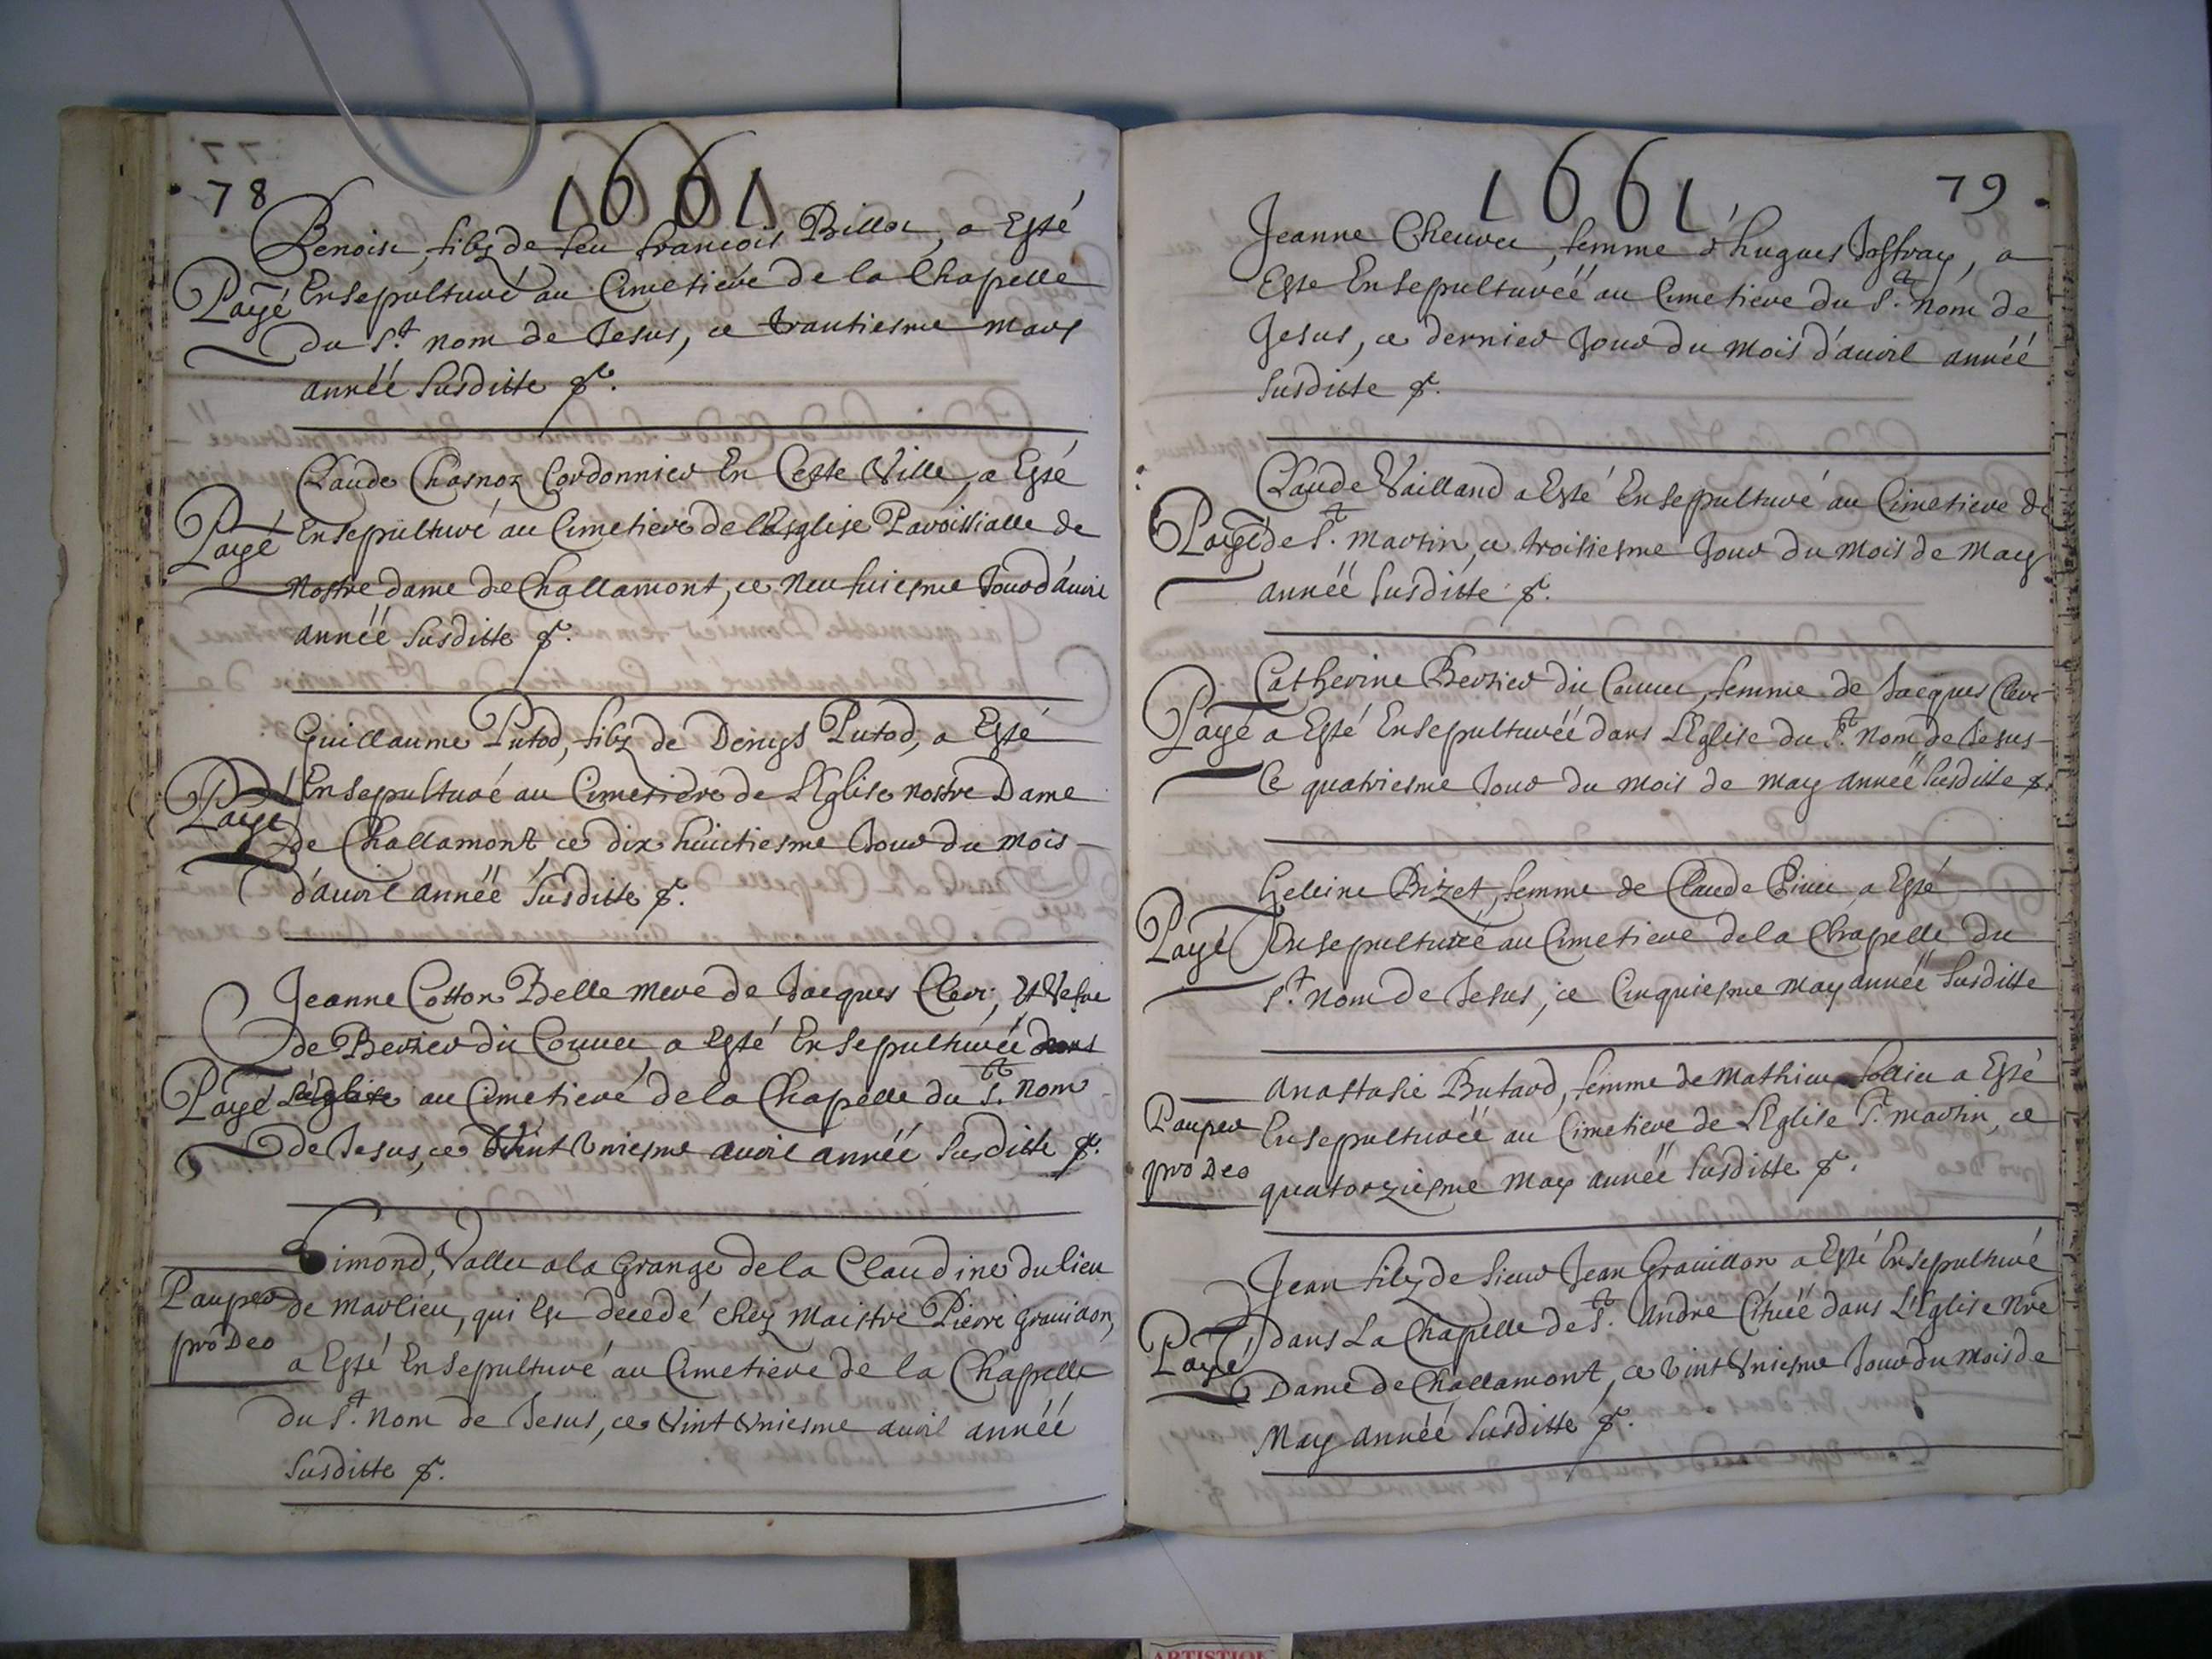 78
1661
Benoist, filz de feu francois Billor, a Esté
Payé
Ensepulturé au Cimetiere de la Chapelle
du St. nom de Jesus, ce trantiesme mars
annéé Susditte &.
Claude Chasnoz Cordonnier En Ceste Ville, a Esté
Payé
Ensepulturé au Cimetiere de lEsglise Paroissialle de
Nostre dame de Challamont, ce Neufuiesme Jour d'auril
annéé Susditte &.
Guillaume Putod, filz de Denys Putod, a Esté
Payé
Ensepulturé au Cimetiere de LEglise nostre Dame
de Challamont ce dix huictiesme Jour du mois
d'auril annéé Susditte &.
Jeanne Cotton Belle mere de Jacques Clerc, Et Vefue
de Berzier du Couuer, a Esté Ensepulturéé dans
Payé
Léglise au Cimetiere de la Chapelle du St. Nom
de Jesus, ce Vint Vniesme auril annéé Susditte &.
Simond, Vallet a la Grange de la Claudine du lieu
Pauper
de Marlieu, qui Est decedé chez Maistre Pierre Grauidon,
pro Deo
a Esté Ensepulturé au Cimetiere de la Chapelle
du St. Nom de Jesus, ce Vint Vniesme auril annéé
Susditte &.
1661
79
Jeanne Cheuuer, femme d'hugues Joffray, a
Este Ensepulturéé au Cimetiere du St. Nom de
Jesus, ce dernier Jour du mois d'auril annéé
Susditte &.
Claude Vailland a Esté Ensepulturé au Cimetiere de
Payé
de St. Martin, ce troisiesme Jour du Mois de May
annéé Susditte &.
Catherine Berzier du Couuer, femme de Jacques Clerc
Payé
a Esté Ensepulturéé dans LEglise du St. Nom de Jesus
Ce quatriesme Jour du mois de may annéé Susditte &.
Helleine Bizet, femme de Claude a Esté
Payé
Ensepulturéé au Cimetiere de la Chapelle du
St. Nom de Jesus, ce Cinquiesme may annéé Susditte
Anastasie Butard, femme de Mathieu a Esté
Pauper
Ensepulturéé au Cimetiere de LEglise St. Martin, ce
pro Deo
quatorziesme May annéé Susditte &.
Jean filz de Sieur Jean Grauillon a Esté Ensepulturé
Payé
dans La Chapelle de St. André Cituéé dans L'Eglise Nre
Dame de Challamont, ce Vint Vniesme Jour du Mois de
May annéé Susditte &.